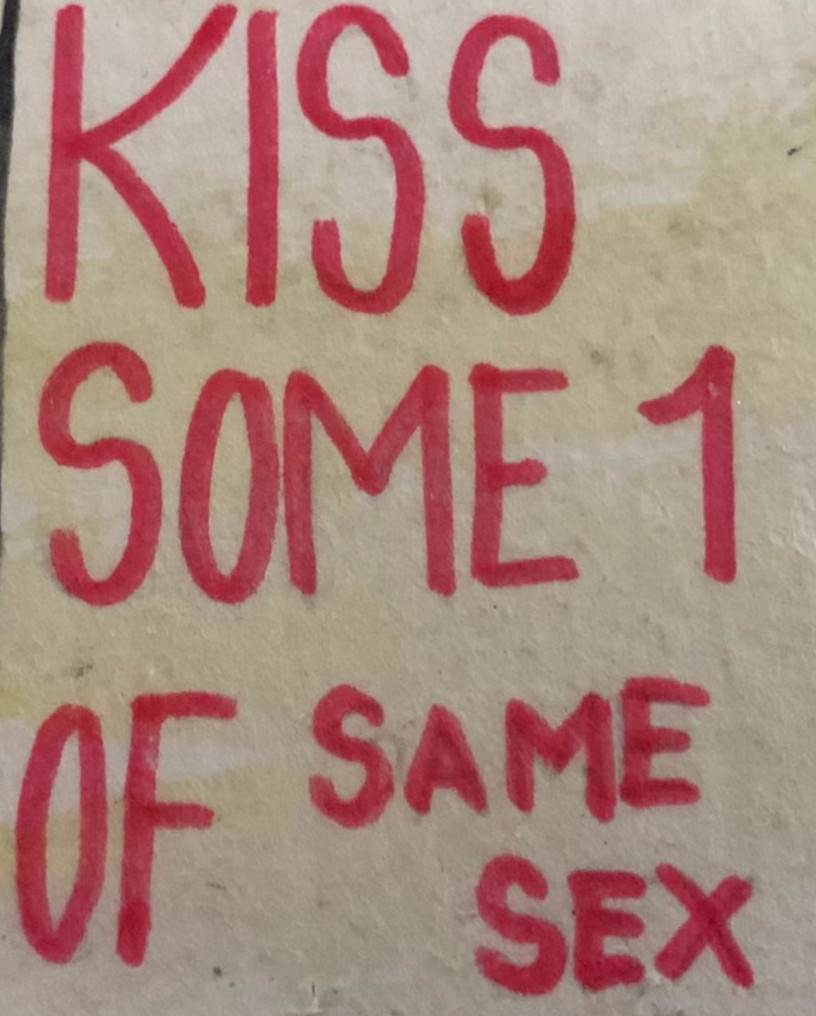 KISS
SOME 1
OF SAME
SEX